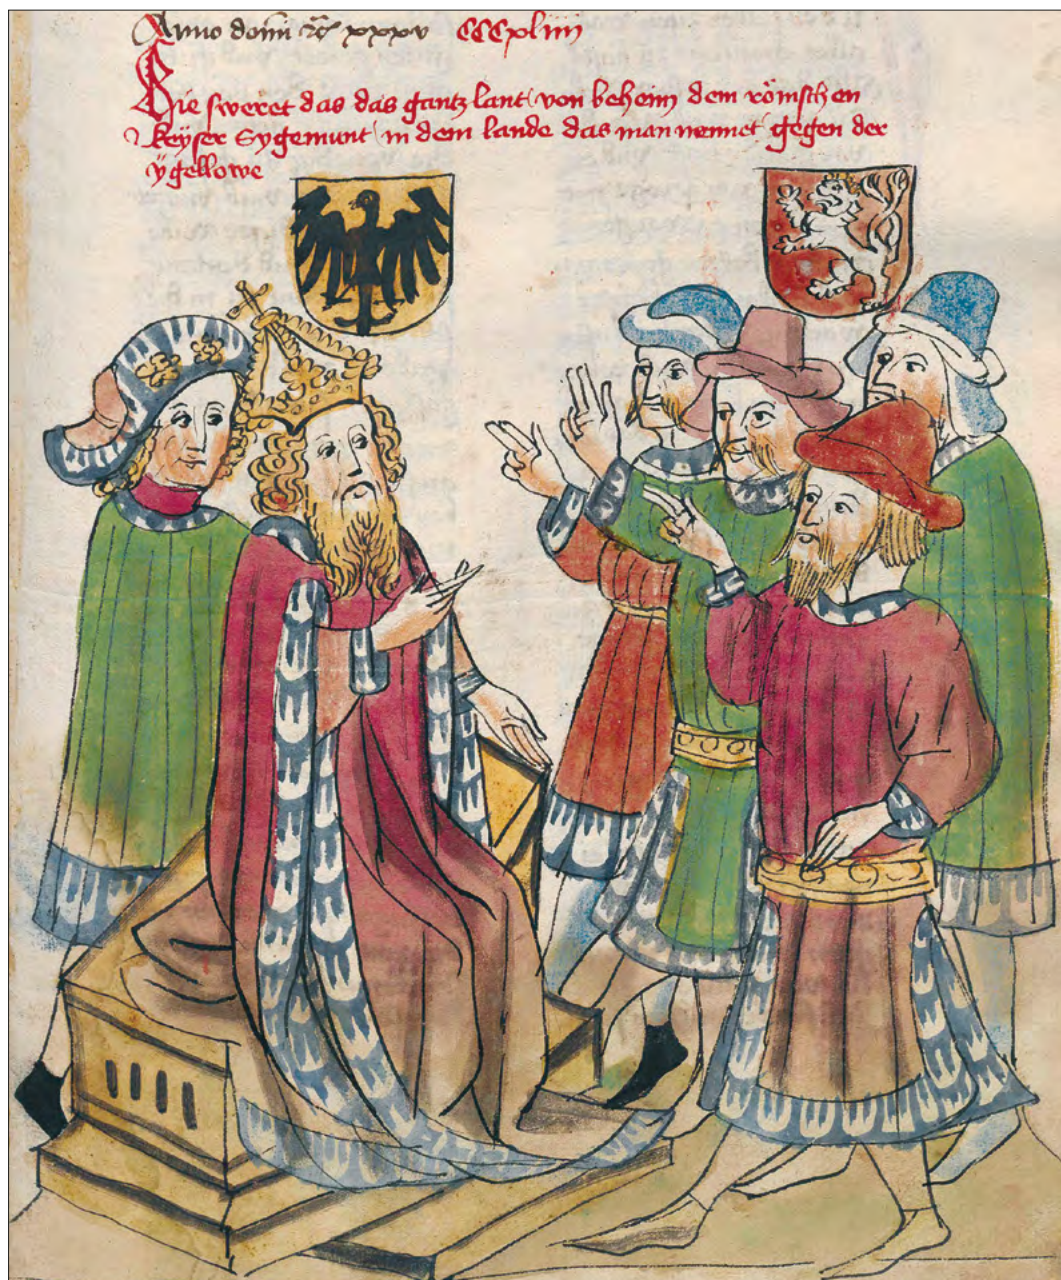 Anno domī rc xxxv CCCxliiij
Hie sweret das das gantz lant von beheim dem römschen
keyser Sygemunt in dem lande das man nennet gegen der
ygellowe